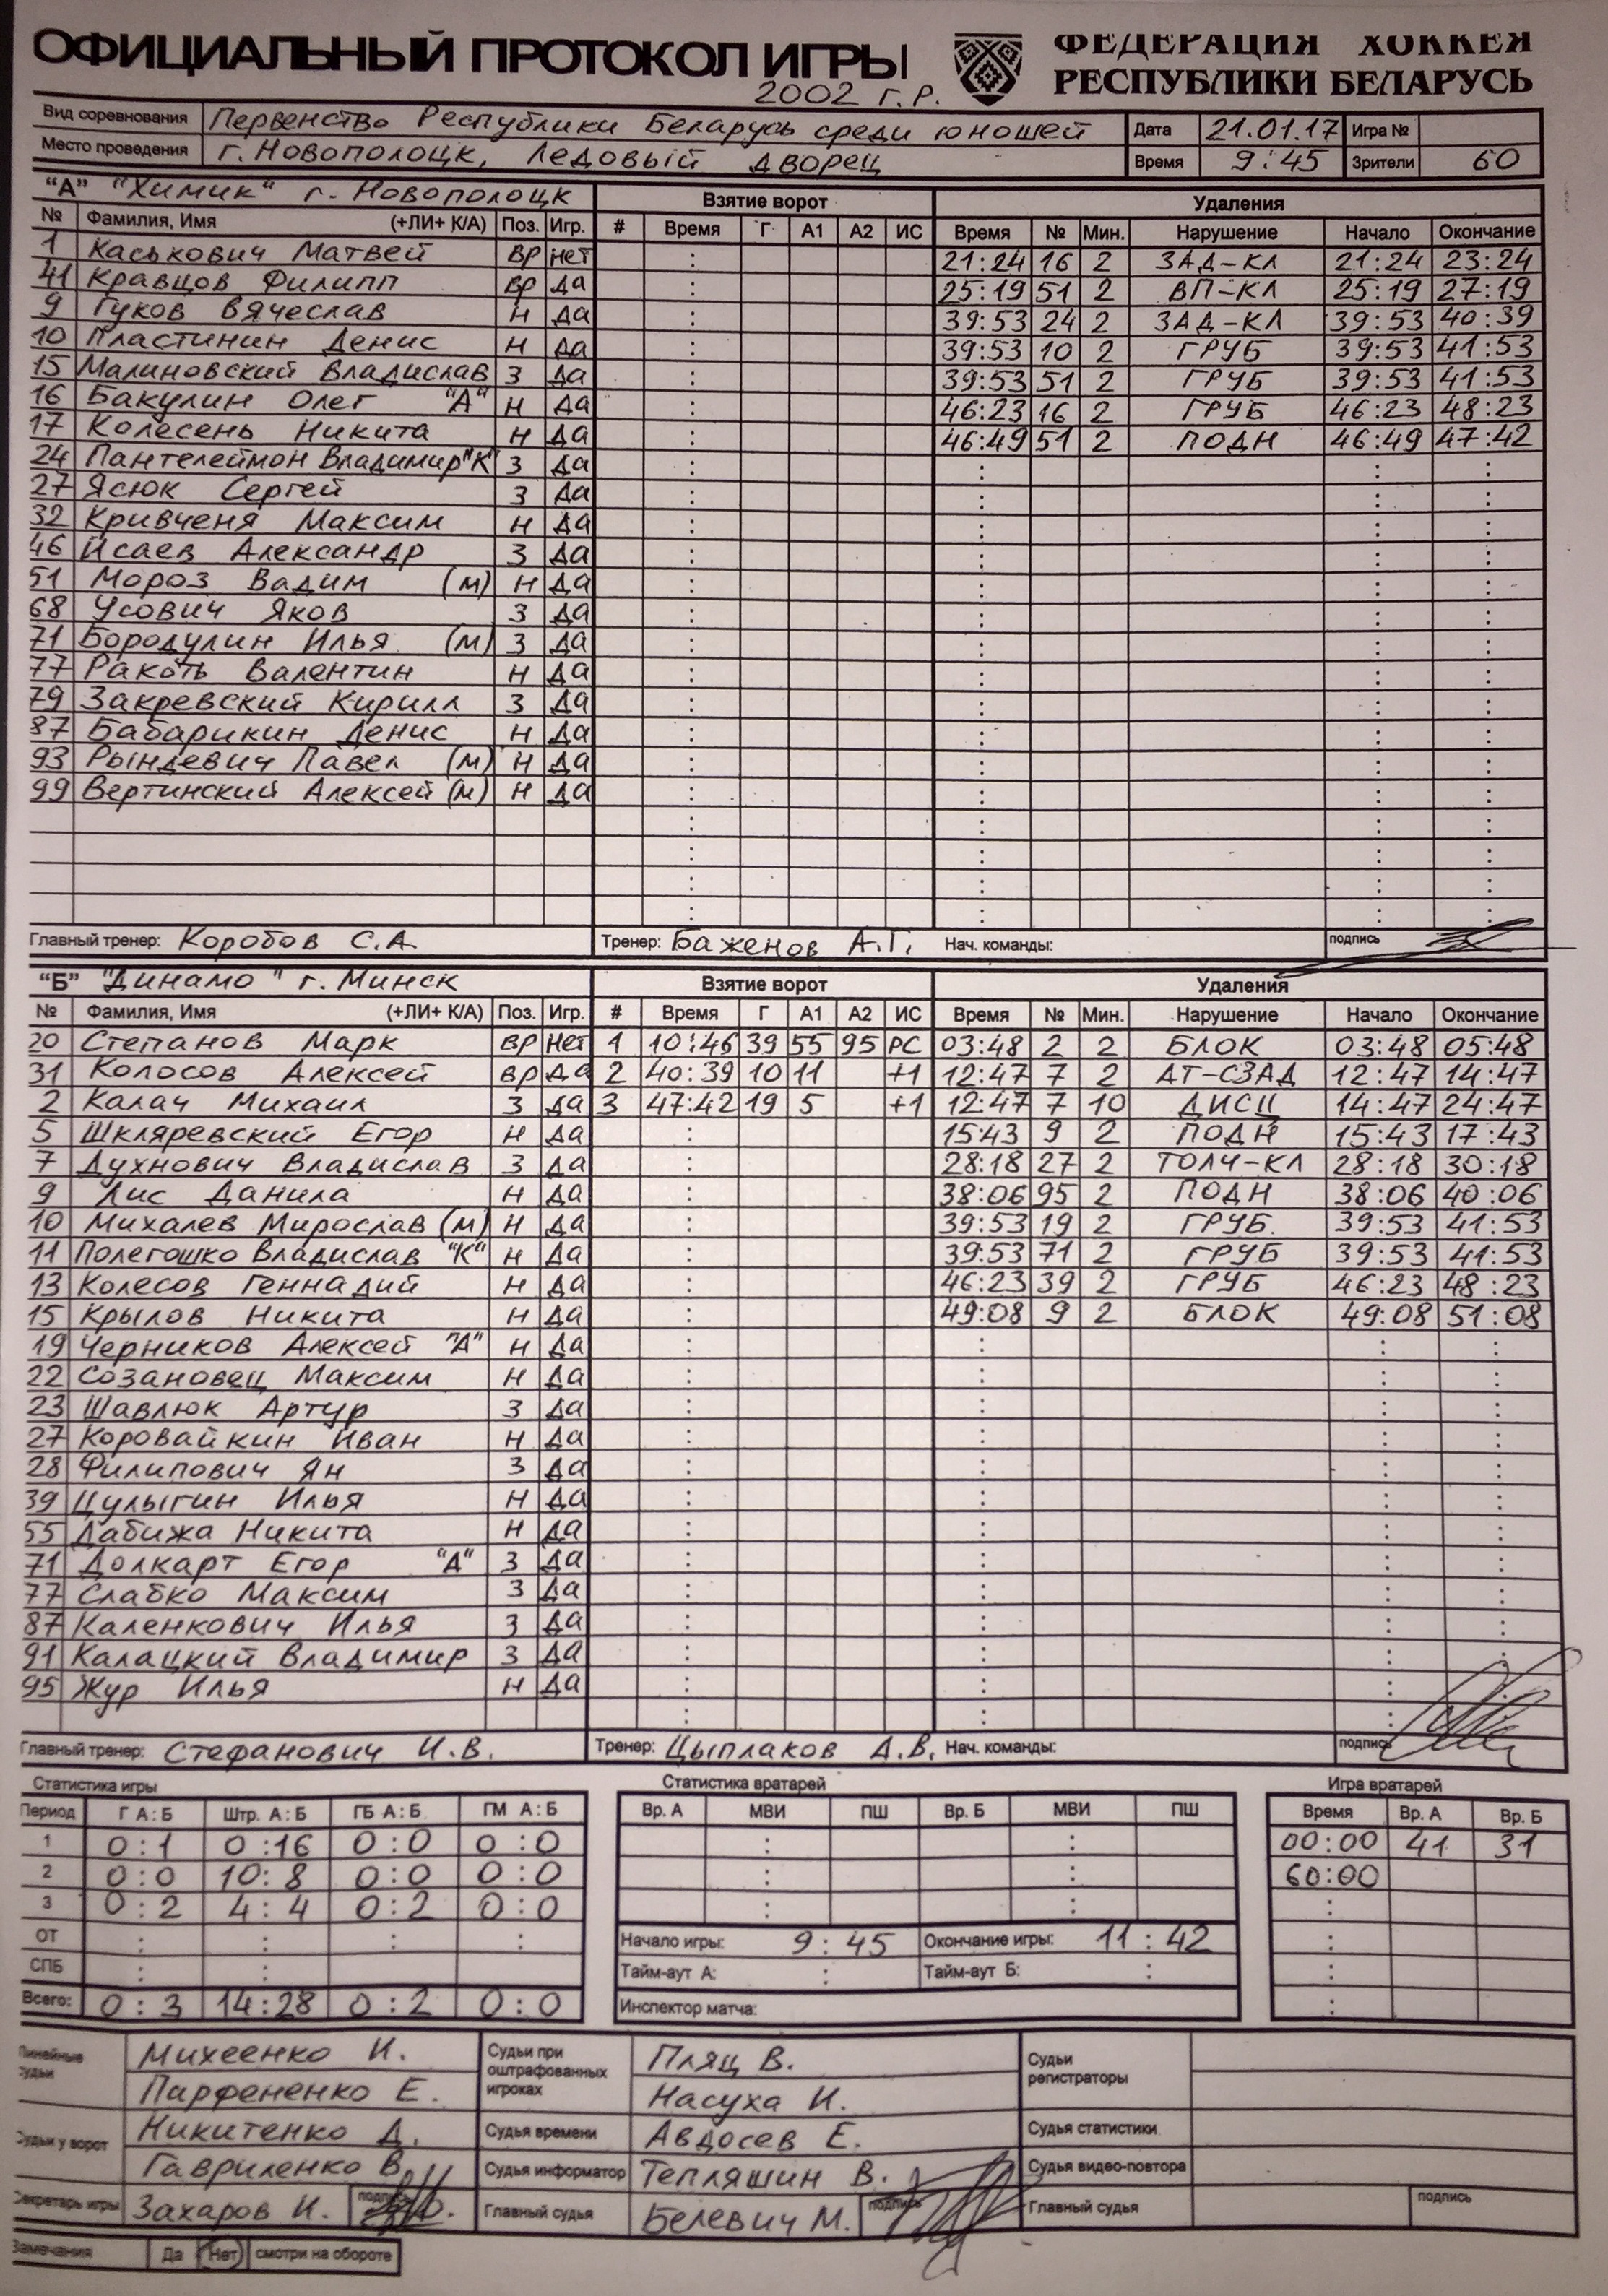 ОФИЦИАЛЬНЫЙ ПРОТОКОЛ ИГРЫ
ФЕДЕРАЦИЯ ХОККЕЯ
РЕСПУБЛИКИ БЕЛАРУСЬ
2002 г.р.
Вид соревнования Первенство Республики Беларусь среди юношей Дата 21.01.17 Игра №
Место проведения г. Новополоцк, Ледовый дворец Время 9:45 Зрители 60
"А" "Химик" г. Новополоцк Взятие ворот Удаления
№ Фамилия, Имя (+ЛИ+ К/А) Поз. Игр. # Время Г А1 А2 ИС Время № Мин. Нарушение Начало Окончание
1 Каськович Матвей вр нет : 21:24 16 2 ЗАД-КЛ 21:24 23:24
41 Кравцов Филипп вр да : 25:19 51 2 ВП-КЛ 25:19 27:19
9 Гуков Вячеслав Н да : 39:53 24 2 ЗАД-КЛ 39:53 40:39
10 Пластинин Денис Н да : 39:53 10 2 ГРУБ 39:53 41:53
15 Малиновский Владислав З да : 39:53 51 2 ГРУБ 39:53 41:53
16 Бакулин Олег "А" Н да : 46:23 16 2 ГРУБ 46:23 48:23
17 Колесень Никита Н да : 46:49 51 2 ПОДН 46:49 47:42
24 Пантелеймон Владимир "К" З да : : : :
27 Ясюк Сергей З да : : : :
32 Кривченя Максим Н да : : : :
46 Исаев Александр З да : : : :
51 Мороз Вадим (м) Н да : : : :
68 Усович Яков З да : : : :
71 Бородулин Илья (м) З да : : : :
77 Ракоть Валентин Н да : : : :
79 Закревский Кирилл З да : : : :
87 Бабарикин Денис Н да : : : :
93 Рындевич Павел (м) Н да : : : :
99 Вертинский Алексей (м) Н да : : : :
: : : :
: : : :
: : : :
: : : :
Главный тренер: Коробов С.А. Тренер: Баженов А.Г. Нач. команды: подпись
"Б" "Динамо" г. Минск Взятие ворот Удаления
№ Фамилия, Имя (+ЛИ+ К/А) Поз. Игр. # Время Г А1 А2 ИС Время № Мин. Нарушение Начало Окончание
20 Степанов Марк вр нет 1 10:46 39 55 95 РС 03:48 2 2 БЛОК 03:48 05:48
31 Колосов Алексей вр да 2 40:39 10 11 +1 12:47 7 2 АТ-СЗАД 12:47 14:47
2 Калач Михаил З да 3 47:42 19 5 +1 12:47 7 10 ДИСЦ 14:47 24:47
5 Шкляревский Егор Н да : 15:43 9 2 ПОДН 15:43 17:43
7 Духнович Владислав З да : 28:18 27 2 ТОЛЧ-КЛ 28:18 30:18
9 Лис Данила Н да : 38:06 95 2 ПОДН 38:06 40:06
10 Михалев Мирослав (м) Н да : 39:53 19 2 ГРУБ. 39:53 41:53
11 Полегошко Владислав "К" Н да : 39:53 71 2 ГРУБ 39:53 41:53
13 Колесов Геннадий Н да : 46:23 39 2 ГРУБ 46:23 48:23
15 Крылов Никита Н да : 49:08 9 2 БЛОК 49:08 51:08
19 Черников Алексей "А" Н да : : : :
22 Созановец Максим Н да : : : :
23 Шавлюк Артур З да : : : :
27 Коровайкин Иван Н да : : : :
28 Филипович Ян З да : : : :
39 Цулыгин Илья Н да : : : :
55 Дабижа Никита Н да : : : :
71 Долкарт Егор "А" З да : : : :
77 Слабко Максим З да : : : :
87 Каленкович Илья З да : : : :
91 Калацкий Владимир З да : : : :
95 Жур Илья Н да : : : :
: : : :
Главный тренер: Стефанович И.В. Тренер: Цыплаков А.В. Нач. команды: подпись
Статистика игры Статистика вратарей Игра вратарей
Период Г А:Б Штр. А:Б ГБ А:Б ГМ А:Б Вр. А МВИ ПШ Вр. Б МВИ ПШ Время Вр. А Вр. Б
1 0:1 0:16 0:0 0:0 : : 00:00 41 31
2 0:0 10:8 0:0 0:0 : : 60:00
3 0:2 4:4 0:2 0:0 : : :
ОТ : : : : Начало игры: 9:45 Окончание игры: 11:42 :
СПБ : : Тайм-аут А: : Тайм-аут Б: : :
Всего: 0:3 14:28 0:2 0:0 Инспектор матча: :
Линейные судьи Михеенко И. Судьи при оштрафованных игроках Пляц В. Судьи регистраторы
Парфененко Е. Насуха И.
Судьи у ворот Никитенко Д. Судья времени Авдосев Е. Судья статистики
Гавриленко В. Судья информатор Тепляшин В. Судья видео-повтора
Секретарь игры Захаров И. подпись Главный судья Белевич М. подпись Главный судья подпись
Замечания Да Нет смотри на обороте